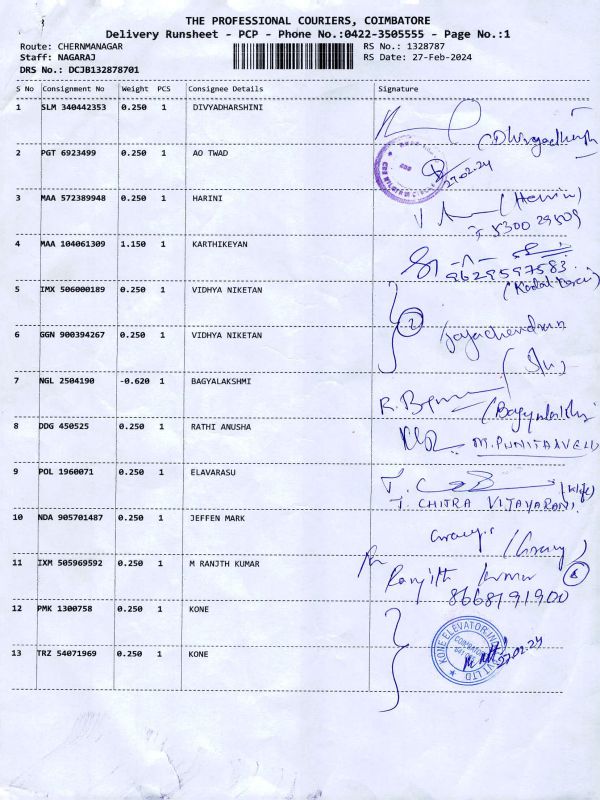 THE PROFESSIONAL COURIERS, COIMBATORE
Delivery Runsheet - PCP - Phone No.:0422-3505555 - Page No.:1
Route: CHERNMANAGAR RS No.: 1328787
Staff: NAGARAJ RS Date: 27-Feb-2024
DRS No.: DCJB132878701
S No Consignment No Weight PCS Consignee Details Signature
1 SLM 340442353 0.250 1 DIVYADHARSHINI
2 PGT 6923499 0.250 1 AO TWAD
27.02.24
3 MAA 572389948 0.250 1 HARINI
4 MAA 104061309 1.150 1 KARTHIKEYAN
9629597583
5 IMX 506000189 0.250 1 VIDHYA NIKETAN
6 GGN 900394267 0.250 1 VIDHYA NIKETAN
2
Jayachandran
7 NGL 2504190 -0.620 1 BAGYALAKSHMI
8 DDG 450525 0.250 1 RATHI ANUSHA
9 POL 1960071 0.250 1 ELAVARASU
T. CHITRA VIJAYARANI
10 NDA 905701487 0.250 1 JEFFEN MARK
11 IXM 505969592 0.250 1 M RANJTH KUMAR
Ranjith Kumar
8668791900
12 PMK 1300758 0.250 1 KONE
13 TRZ 54071969 0.250 1 KONE
KONE ELEVATOR
27.02.24